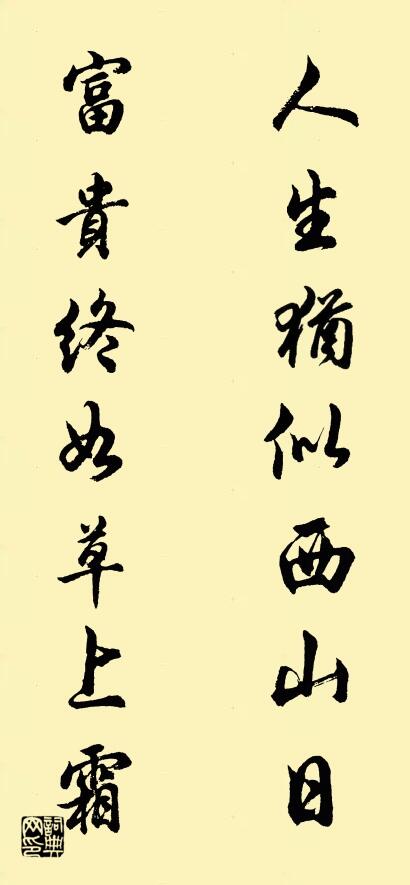 人生猶似西山日
富貴終如草上霜
詞典網印